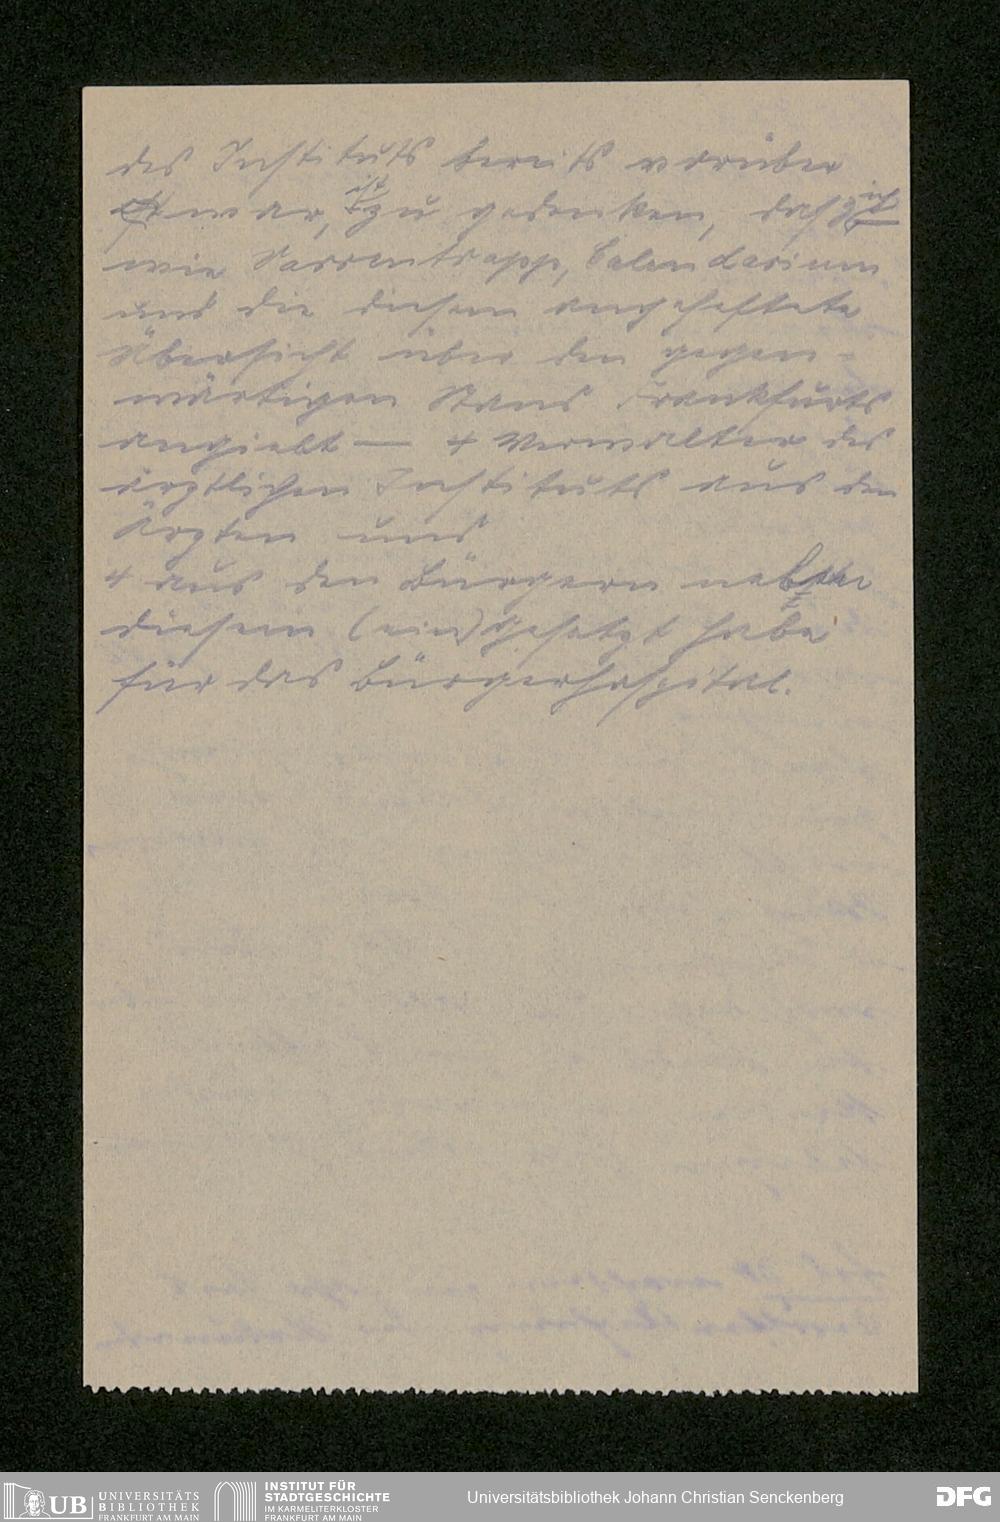 des Instituts bereits vorüber
war, ist zu gedenken, daß ich
wie Varrentrapp, Calendarium
und die diesem angeheftete
Übersicht über den gegen-
wärtigen Stand Frankfurts
angiebt — 4 Verwalter des
ärztlichen Instituts aus den
Ärzten und
4 aus den Bürgern neben
diesem (ein)gesetzt habe
für das Bürgerhospital.
UB UNIVERSITÄTS
BIBLIOTHEK
FRANKFURT AM MAIN
INSTITUT FÜR
STADTGESCHICHTE
IM KARMELITERKLOSTER
FRANKFURT AM MAIN
Universitätsbibliothek Johann Christian Senckenberg
DFG